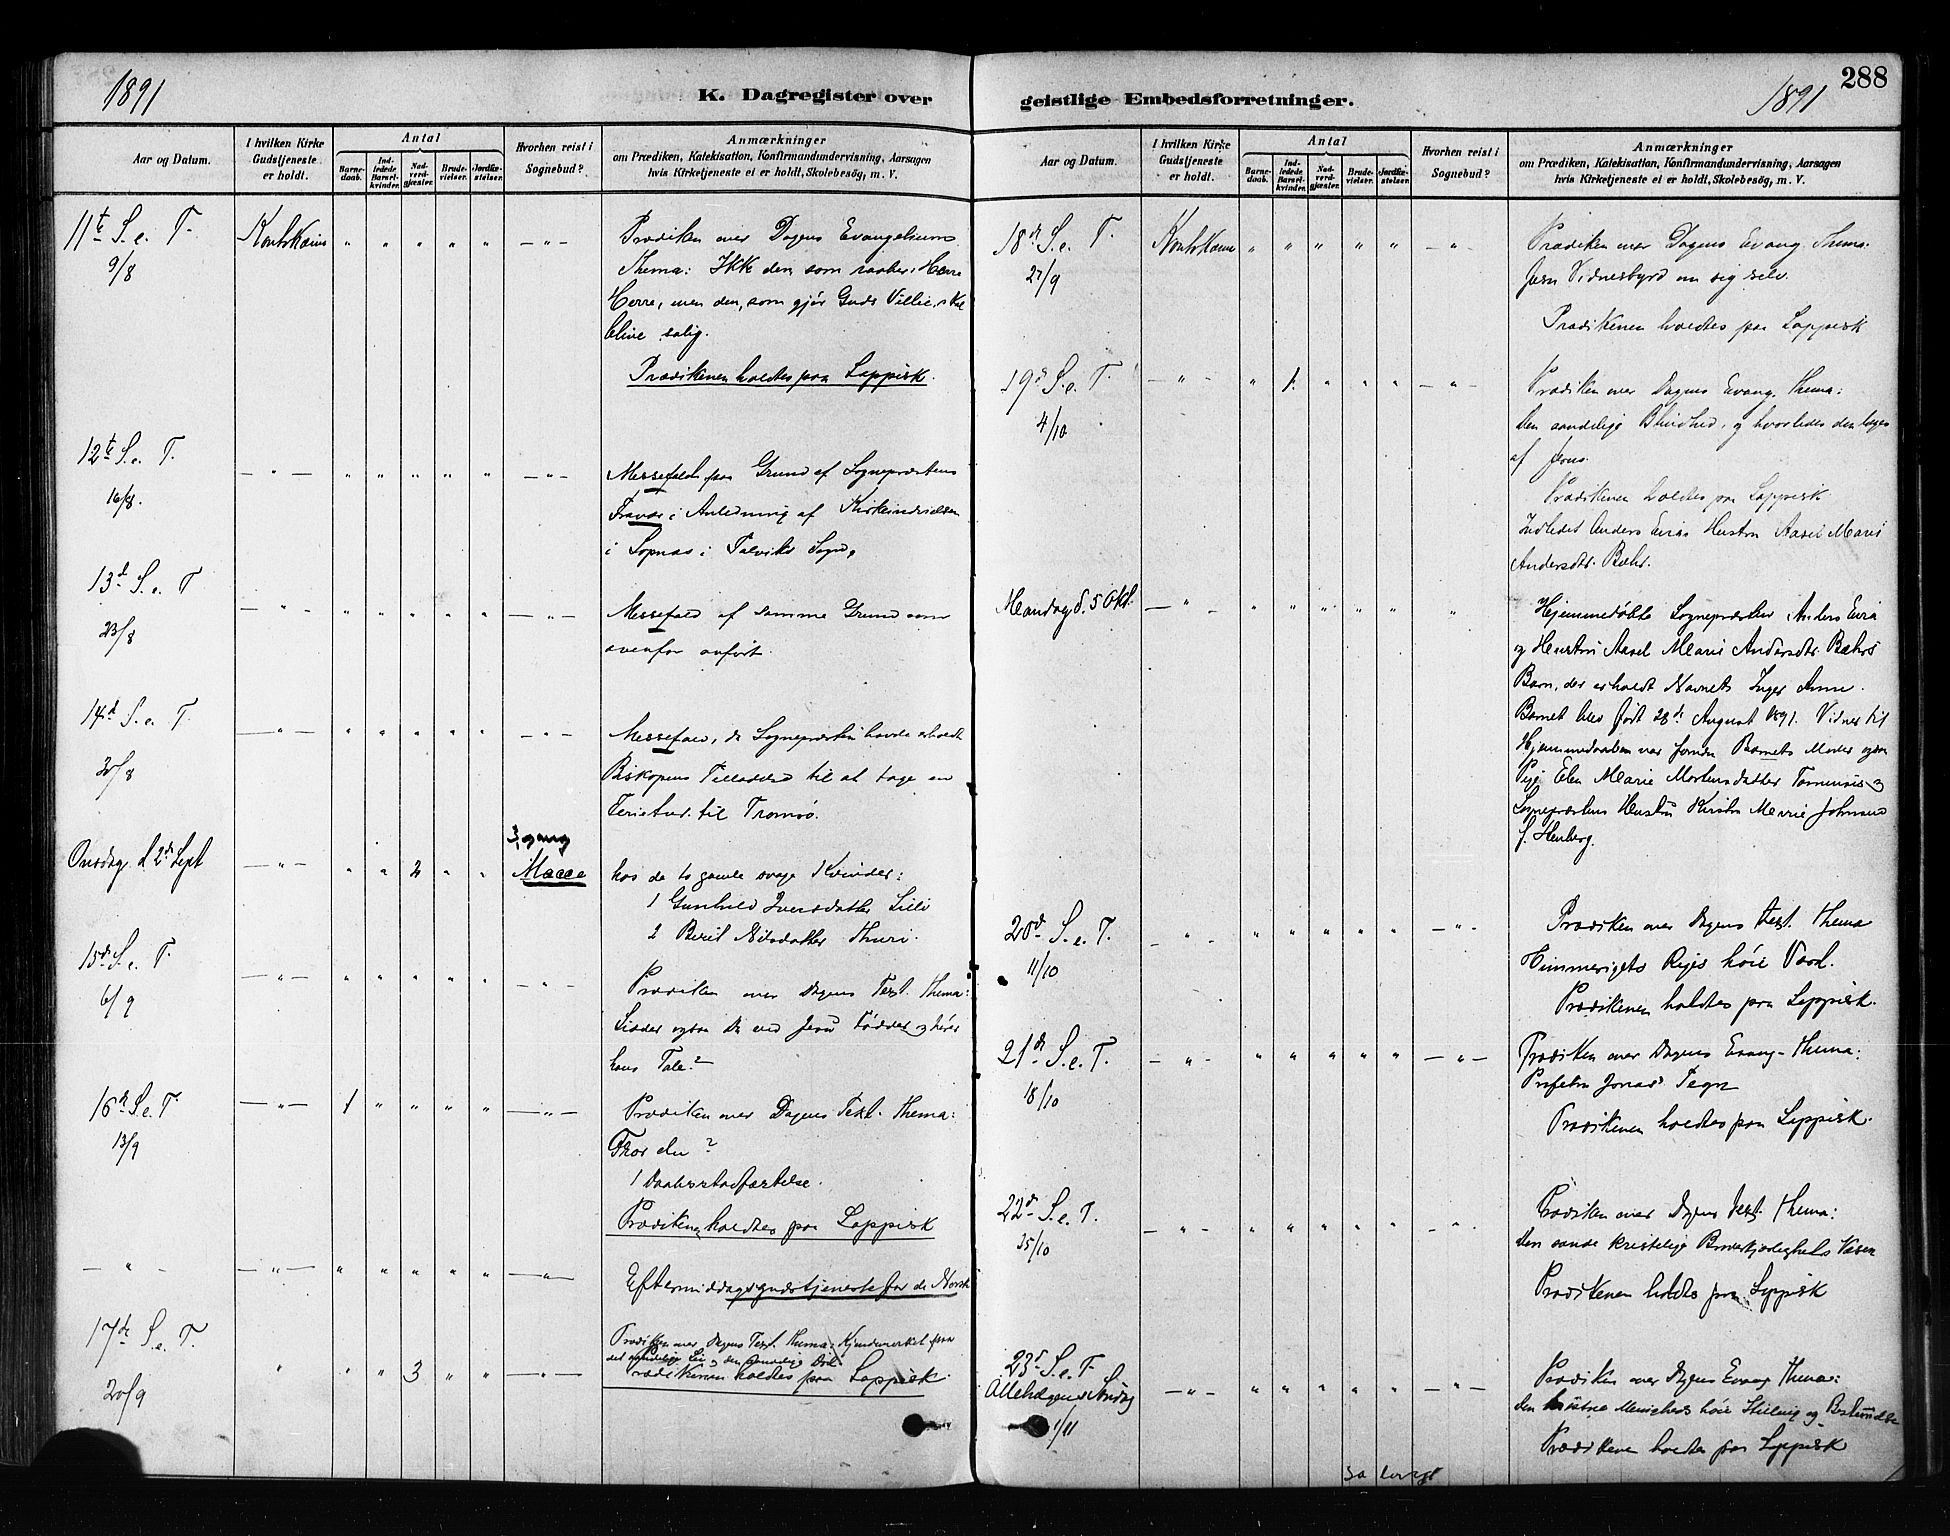 1891
K. Dagregister over
Aar og Datum.
I hvilken Kirke Gudstjeneste er holdt.
Antal
Barnedaab.
Indledede Barselkvinder.
Nadverdgjæster.
Brudevielser.
Jordfæstelser.
Hvorhen reist i Sognebud?
Anmærkninger
om Prædiken, Katekisation, Konfirmandundervisning, Aarsagen
hvis Kirketjeneste ei er holdt, Skolebesög, m. V.
11te S. e. T.
9/8
Koutokæino " " " " " — " —
Prædiken over Dagens Evangelium.
Thema: Ikke den som raaber: Herre
Herre, men den, som gjör Guds Villie, skal
blive salig.
Prædikenen holdtes paa Lappisk.
12te S. e. T.
16/8.
— " — " " " " " — " —
Messefald paa Grund af Sognepræstens
Fravær i Anledning af Kirkeindvielsen
i Sopnæs i Talviks Sogn.
13de S. e. T
23/8
— " — " " " " " — " —
Messefald af samme Grund som
ovenfor anfört.
14de S. e. T.
30/8
— " — " " " " " — " —
Messefald, da Sognepræsten havde erholdt
Biskopens Tilladelse til at tage en
Ferietur til Tromsö.
Onsdag d 2de Sept
— " — " " 2 " "
3 gang
Macce
hos de to gamle svage Kvinder:
1 Gunhild Iversdatter
2 Berit Nilsdatter Thuri.
15de S. e. T.
6/9
— " — " " " " " — " —
Prædiken over Dagens Text. Thema:
Sidder ogsaa Du ved Jesu Födder og hörer
hans Tale?
16de S. e. T.
13/9
— " — 1 " " " " — " —
Prædiken over Dagens Text. Thema:
Tror du?
1 Daabsstadfæstelse.
Prædikenen holdtes paa Lappisk
— " — — " — " " " " " — " —
Eftermiddagsgudstjeneste for de Norske
17de S. e. T.
20/9
" " " 3 " " — " —
Prædiken over Dagens Text. Thema: Kjendemærket paa
det aandelige Liv og den aandelige Död.
Prædikenen holdtes paa Lappisk.
288
1891
geistlige Embedsforretninger.
Aar og Datum.
I hvilken Kirke Gudstjeneste er holdt.
Antal
Barnedaab.
Indledede Barselkvinder.
Nadverdgjæster.
Brudevielser.
Jordfæstelser.
Hvorhen reist i Sognebud?
Anmærkninger
om Prædiken, Katekisation, Konfirmandundervisning, Aarsagen
hvis Kirketjeneste ei er holdt, Skolebesög, m. V.
18de S. e. T.
27/9
Koutokæino " " " " " — " —
Prædiken over Dagens Evang. Thema:
Jesu Vidnesbyrd om sig selv.
Prædikenen holdtes paa Lappisk
19de S. e. T.
4/10
— " — " 1. " " " — " —
Prædiken over Dagens Evang. Thema:
Den aandelige Blindhed, og hvorledes den læges
af Jesus.
Prædikenen holdtes paa Lappisk
Indledet Anders Eiras Hustru Aasel Marie
Andersdtr. Bæhr.
Mandag d. 5 Okt.
— " — " " " " " "
Hjemmedöbte Sognepræsten Anders Eira
og Hustru Aasel Marie Andersdtr. Bæhrs
Barn, der erholdt Navnet Inger Anne.
Barnet blev födt 28de August 1891. Vidner til
Hjemmedaaben var foruden Barnets Moder ogsaa
Pige Elen Marie Mortensdatter og
Sognepræstens Hustru Kirstin Marie Johnsen
f.
20de S. e. T.
11/10
— " — " " " " " — " —
Prædiken over Dagens Text. Thema
Himmerigets Riges höie Værd.
Prædikenen holdtes paa Lappisk.
21de S. e. T.
18/10
— " — " " " " " — " —
Prædiken over Dagens Evang. Thema:
Profeten Jonas' Tegn
Prædikenen holdtes paa Lappisk.
22de S. e. T.
25/10
— " — " " " " " — " —
Prædiken over Dagens Text. Thema:
Den sande kristelige Broderkjærligheds Væsen
Prædikenen holdtes paa Lappisk
23de S. e. T.
Allehelgens Söndag
1/11
— " — " " " " " — " —
Prædiken over Dagens Evang Thema:
den kristne Menigheds höie Stilling og Bestemmelse
Prædikenen holdtes paa Lappisk